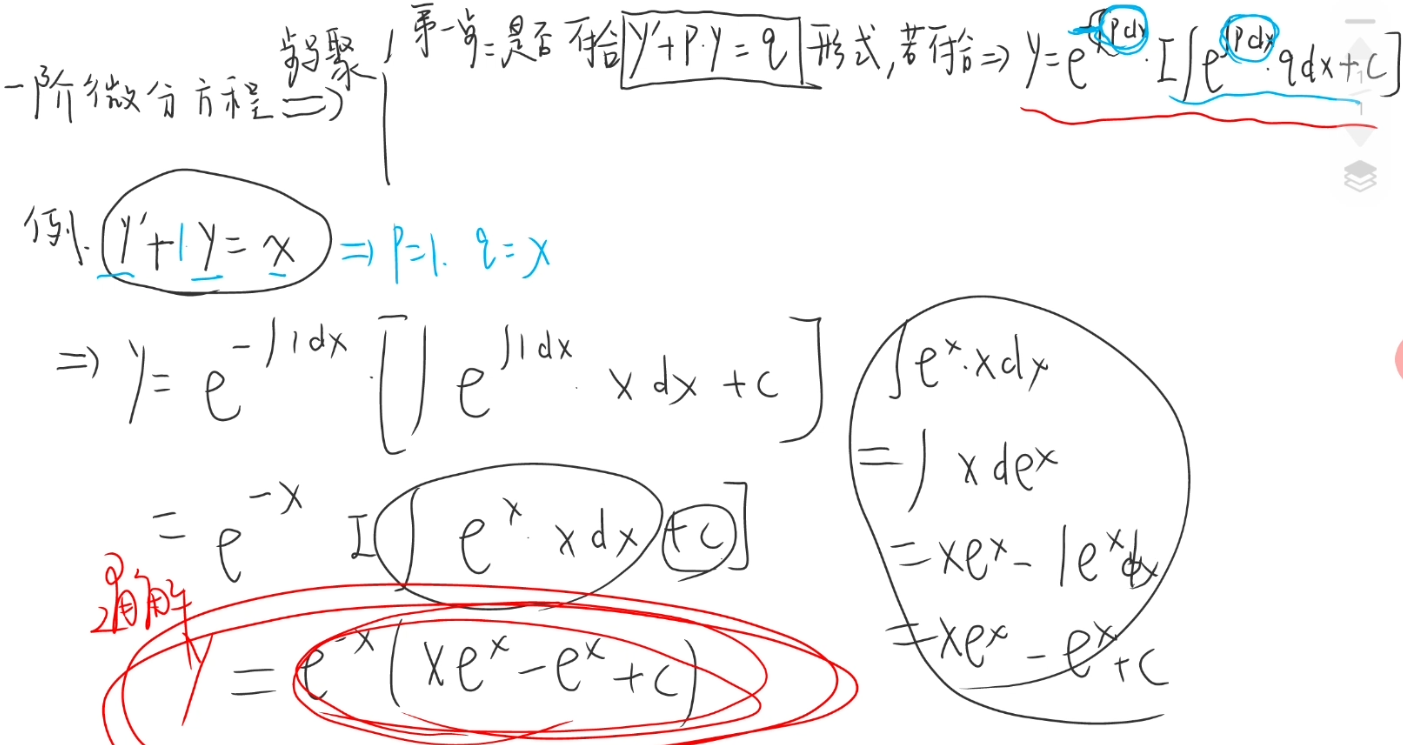 一阶微分方程 步骤 => { 第一步: 是否符合 y'+P·y=q 形式,若符合 => y=e^{-∫pdx}·[∫e^{∫pdx}·qdx+c]
例. y'+1·y=x => p=1. q=x
=> y=e^{-∫1dx}·[∫e^{∫1dx}·xdx+c]
=e^{-x}[∫e^x·xdx+c]
通解
y=e^{-x}(xe^x-e^x+c)
∫e^x·xdx
=∫xde^x
=xe^x-∫e^xdx
=xe^x-e^x+c